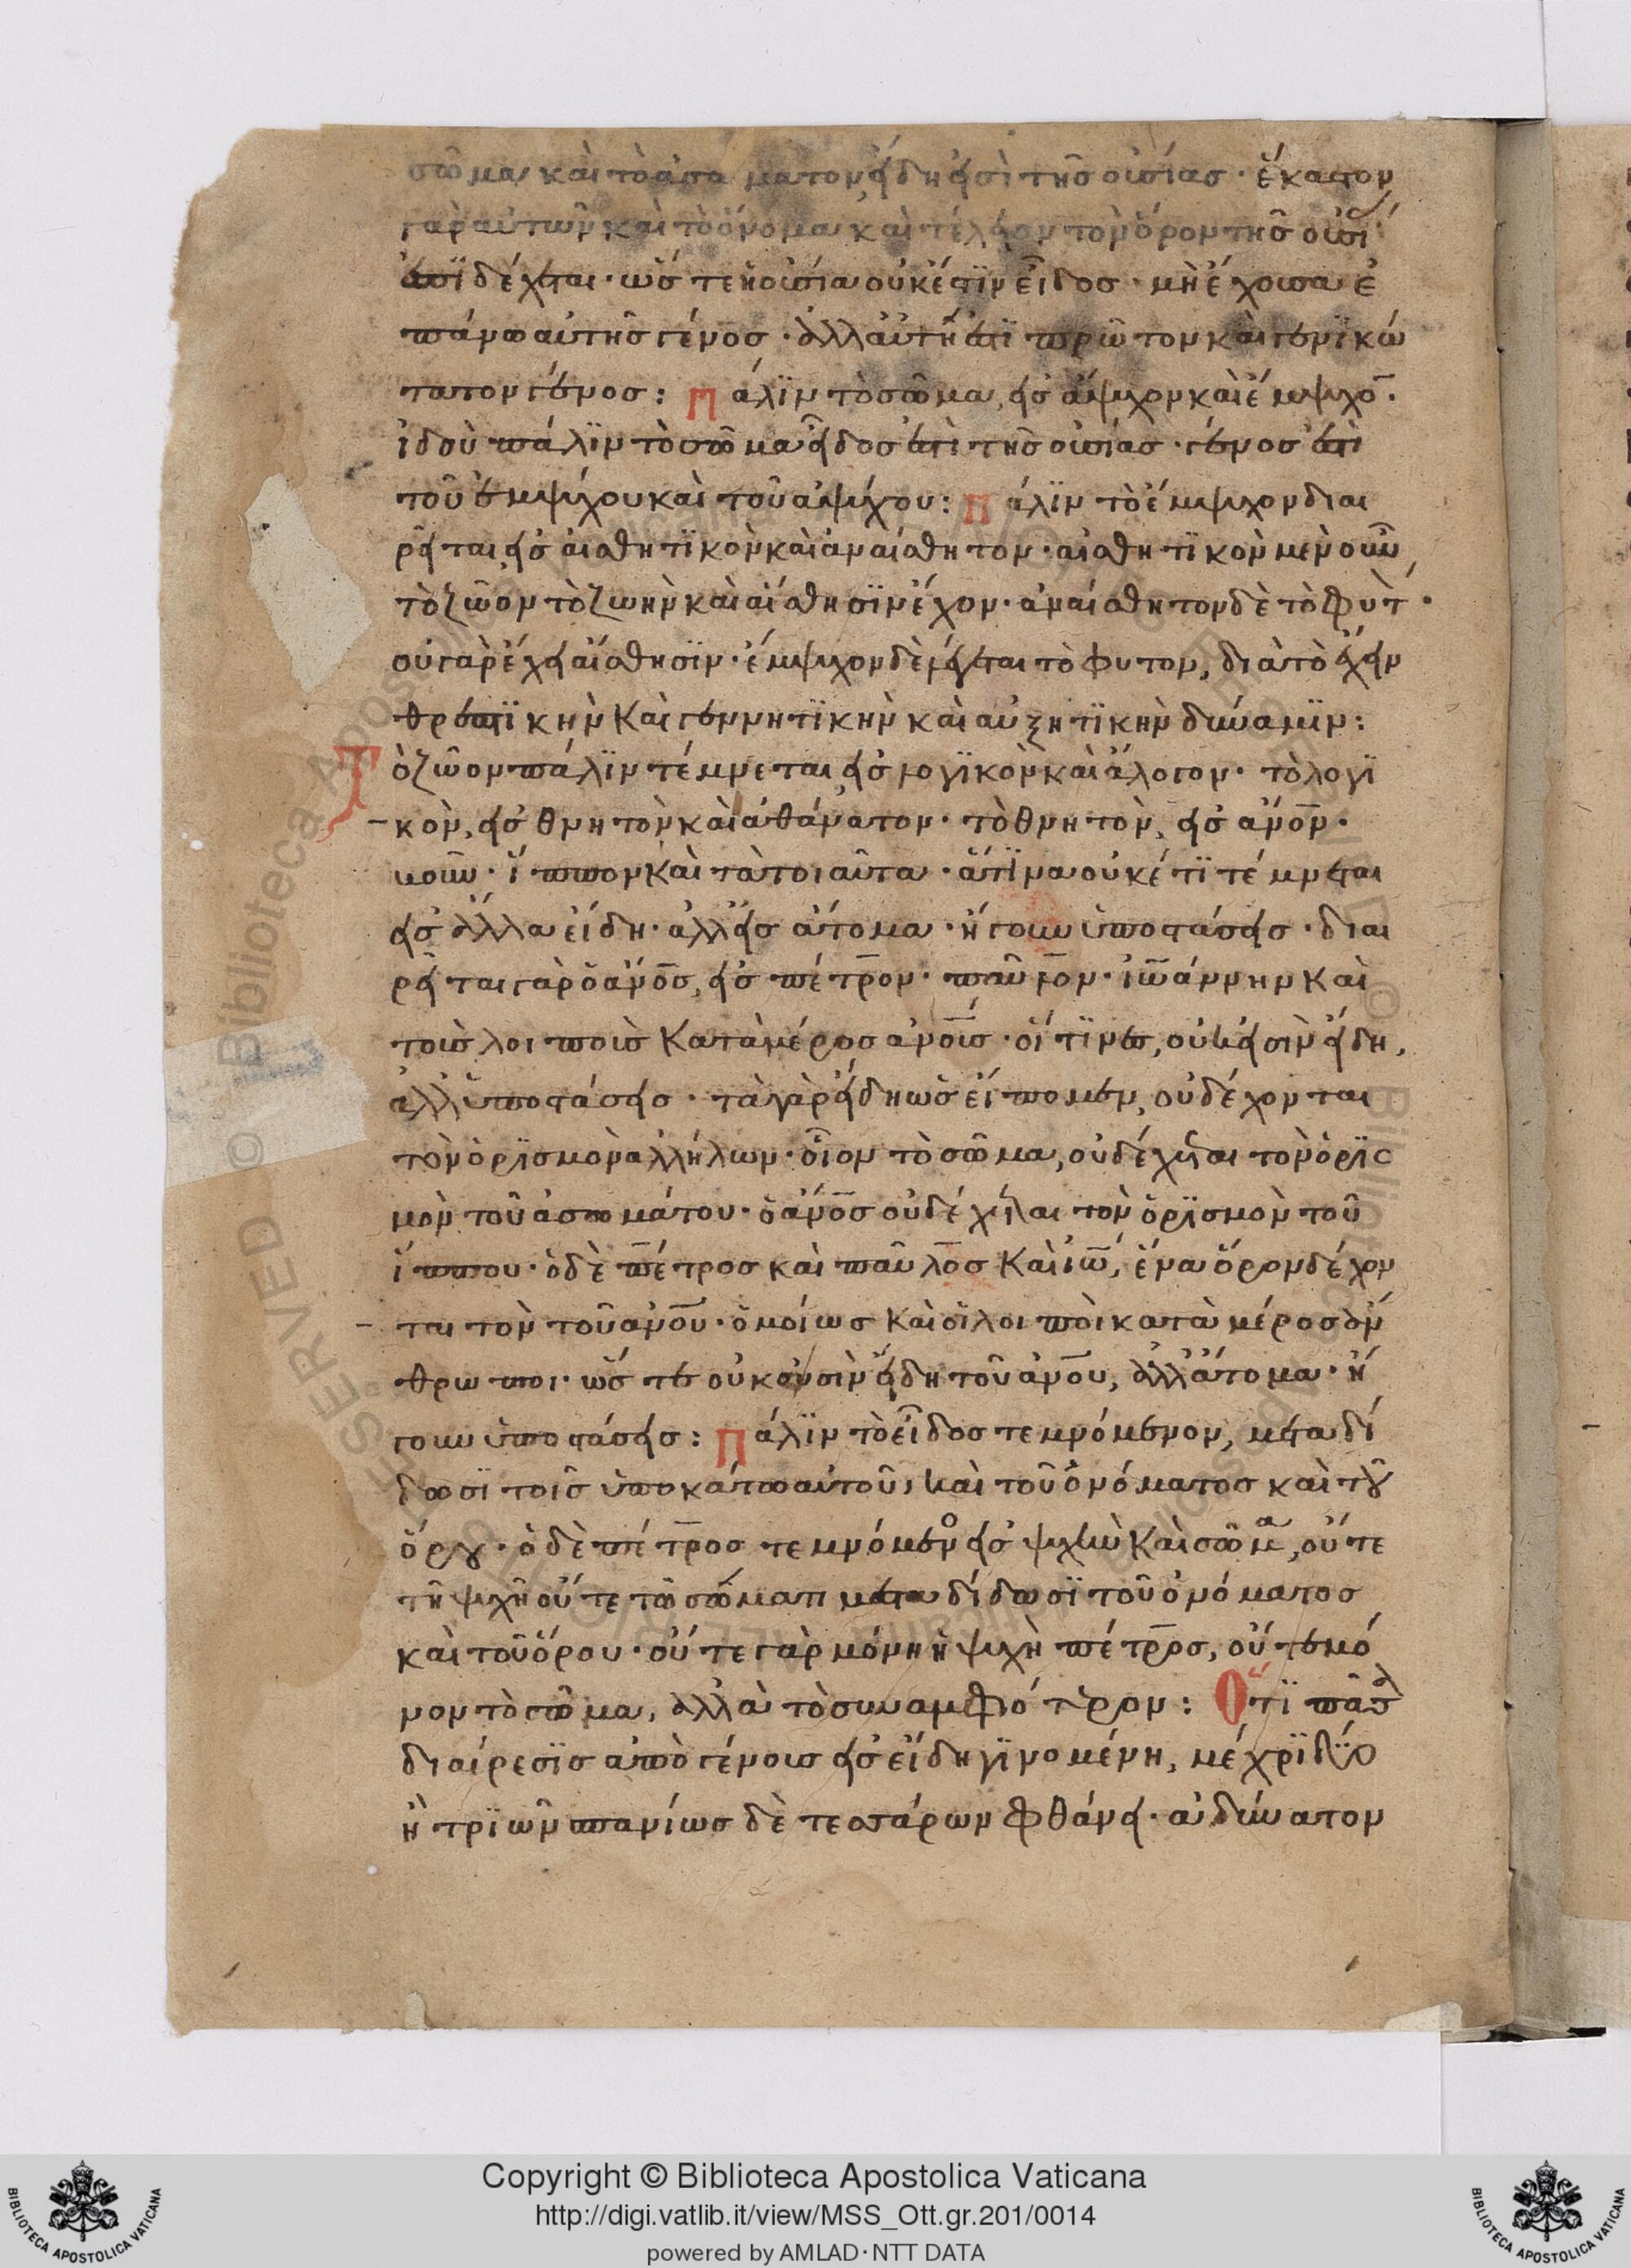 σῶμα καὶ τὸ ἀσώματον εἴδη εἰσὶ τῆς οὐσίας· ἕκαστον
γὰρ αὐτῶν καὶ τὸ ὄνομα καὶ τέλειον τὸν ὅρον τῆς οὐσί
ασ ἐπιδέχεται· ὥστε ἡ οὐσία οὐκ ἔστιν εἶδος· μὴ ἔχουσα ἐ
πάνω αὐτῆς γένος· ἀλλ' αὐτή ἐστι πρῶτον καὶ γενικώ
τατον γένος: Πάλιν τὸ σῶμα, εἰς ἄψυχον καὶ ἔμψυχο̅·
ἰδοὺ πάλιν τὸ σῶμα εἶδος ἐστὶ τῆς οὐσίας· γένος ἐστὶ
τοῦ ἐμψύχου καὶ τοῦ ἀψύχου: Πάλιν τὸ ἔμψυχον διαι
ρεῖται εἰς αἰσθητικὸν καὶ ἀναίσθητον· αἰσθητικὸν μὲν οὖν
τὸ ζῶον τὸ ζωὴν καὶ αἴσθησιν ἔχον· ἀναίσθητον δὲ τὸ φυτ·
οὐ γὰρ ἔχει αἴσθησιν· ἔμψυχον δὲ λέγεται τὸ φυτον, διὰ τὸ ἔχειν
θρεπτικὴν καὶ γεννητικὴν καὶ αὐξητικὴν δύναμιν:
Τὸ ζῶον πάλιν τέμνεται εἰς λογικὸν καὶ ἄλογον· τὸ λογι
κὸν, εἰς θνητὸν καὶ ἀθάνατον· τὸ θνητὸν, εἰς ἄνο̅ν·
ἵππον καὶ τὰ τοιαῦτα· ἅτινα οὐκέτι τέμνεται
εἰς ἄλλα εἴδη· ἀλλ' εἰς ἄτομα· ἤγουν ὑποστάσεις· διαι
ρεῖται γὰρ ὁ ἄνο̅ς, εἰς πέτρον· παῦλον· ἰω̅άννην καὶ
τοὺς λοιποὺς κατὰ μέρος ἀνο̅υς· οἵτινες, οὐκ εἰσὶν εἴδη,
ἀλλ' ὑποστάσεις· τὰ γὰρ εἴδη ὡς εἴπομεν, οὐ δέχονται
τὸν ὁρισμὸν ἀλλήλων· οἷον τὸ σῶμα, οὐ δέχεται τὸν ὁρισ
μὸν τοῦ ἀσωμάτου· ὁ ἄνο̅ς οὐ δέχεται τὸν ὁρισμὸν τοῦ
ἵππου· ὁ δὲ πέτρος καὶ παῦλος καὶ ἰω̅, ἕνα ὅρον δέχον
ται τὸν τοῦ ἀνο̅υ· ὁμοίως καὶ οἱ λοιποὶ κατὰ μέρος ἄν
θρωποι· ὥστε οὐκ εἰσὶν εἴδη τοῦ ἀνο̅υ, ἀλλ' ἄτομα· ἤ
γουν ὑποστάσεις: Πάλιν τὸ εἶδος τεμνόμενον, μεταδί
δωσι τοῖς ὑποκάτω αὐτοῦ, καὶ τοῦ ὀνόματος καὶ τοῦ
ὅρου· ὁ δὲ πέτρος τεμνόμενο εἰς ψυχὴν καὶ σῶμα, οὔτε
τῇ ψυχῇ οὔτε τῷ σώματι μεταδίδωσι τοῦ ὀνόματος
καὶ τοῦ ὅρου· οὔτε γὰρ μόνη ἡ ψυχὴ πέτρος, οὔτε μό
νον τὸ σῶμα, ἀλλὰ τὸ συναμφότερον: Ὅτι πᾶσα
διαίρεσις ἀπὸ γένους εἰς εἴδη γινομένη, μέχρι δύο
ἢ τριῶν σπανίως δὲ τεσσάρων φθάνει· ἀδύνατον